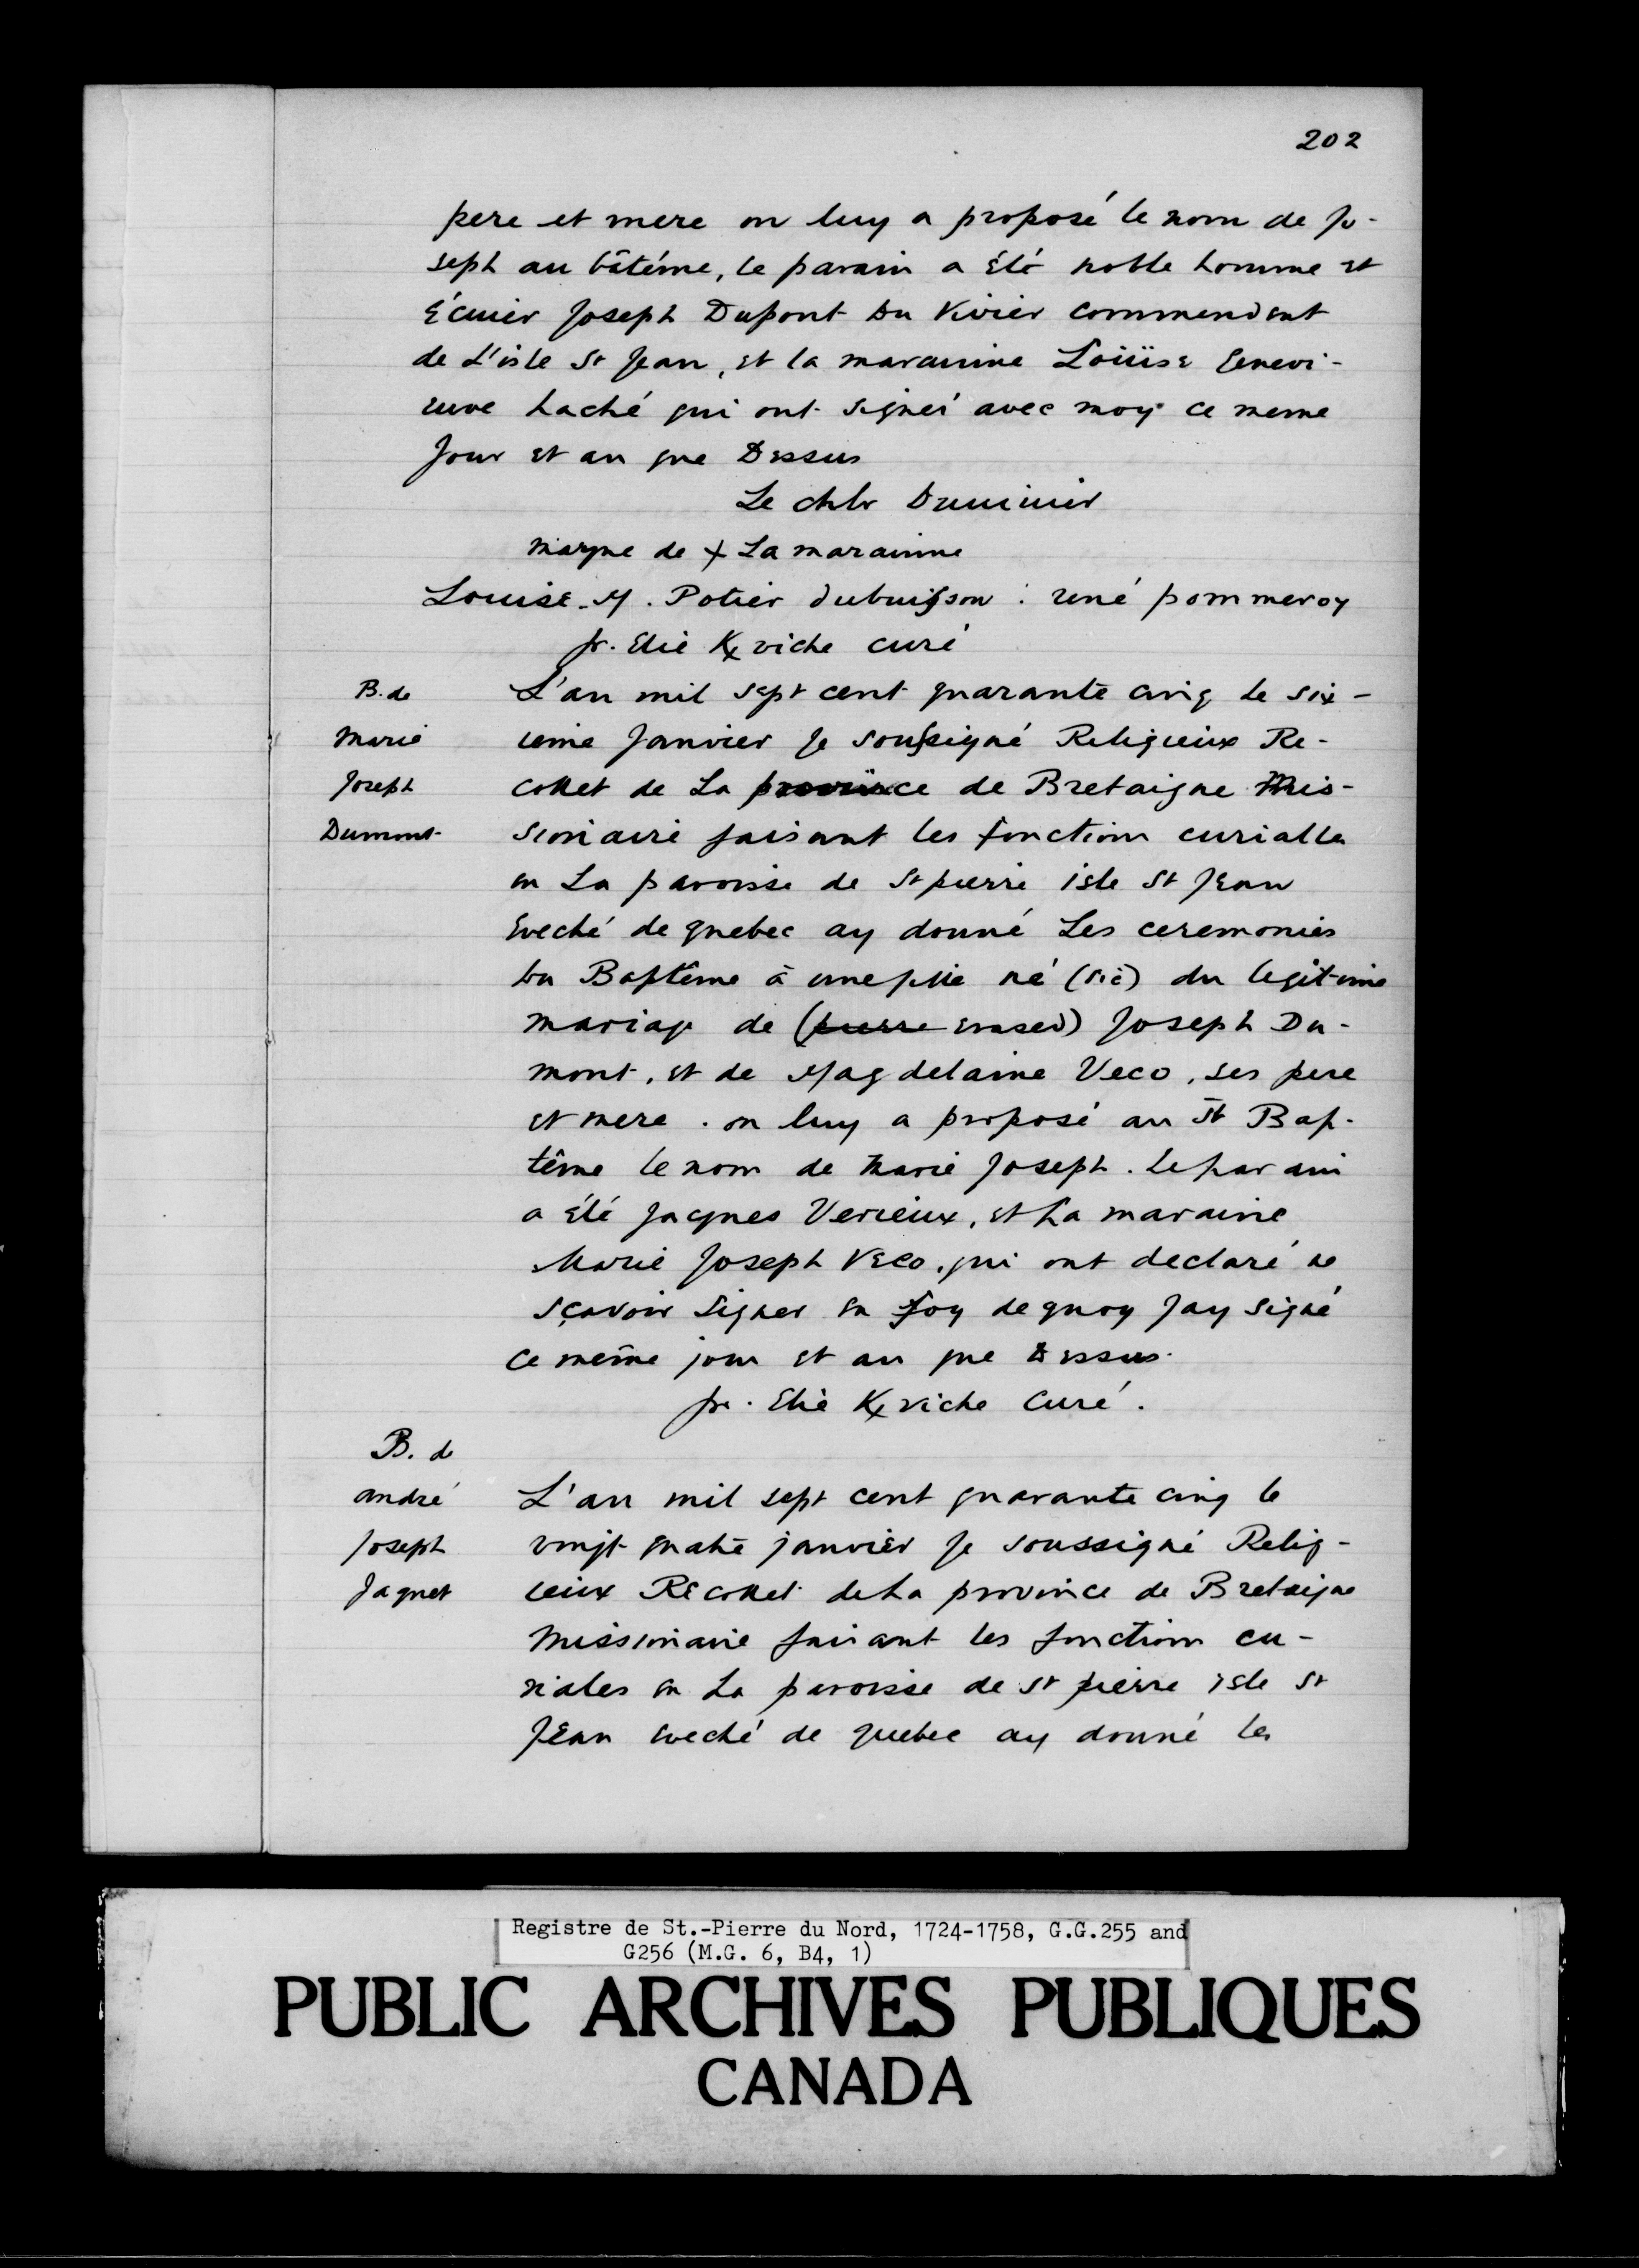 202
pere et mere on luy a proposé le nom de Jo-
seph au bâtéme, le parain a été noble homme et
Écuier Joseph Dupont Du Vivier commendent
de L'isle St Jean, et la marainine Loüise Genevi-
euve haché qui ont signei avec moy ce meme
Jour et an que Dessus
Le chlr Duuiuier
marque de + La marainne
Louise. M. Potier dubuisson : rené pommeroy
fr. Elie K viche curé
B. de
Marie
Joseph
Dumont
L'an mil sept cent quarante cinq le six-
ieme Janvier Je soussigné Religieux Re-
collet de La province de Bretaigne Mis-
sionaire faisant les fonction curialles
en La paroisse de St pierre isle St Jean
Eveché de quebec ay donné Les ceremonies
Du Baptême à une fille né (sic) du legitime
mariage de (pierre erased) Joseph Du-
mont, et de Magdelaine Veco, ses pere
et mere. on luy a proposé au St Bap-
tême le nom de Marie Joseph. Le parain
a été Jacques Verieux, et La maraine
Marie Joseph Veco, qui ont declaré ne
sçavoir signer en foy de quoy Jay signé
ce même jour et an que Dessus.
fr. Elie K viche Curé.
B. de
andré
Joseph
Jaquet
L'an mil sept cent quarante cinq le
vingt quatre janvier Je soussigné Relig-
ieux Recollet de La province de Bretaigne
Missionaire faisant les fonction cu-
riales en La paroisse de St pierre isle St
Jean eveché de quebec ay donné les
Registre de St.-Pierre du Nord, 1724-1758, G.G.255 and
G256 (M.G. 6, B4, 1)
PUBLIC ARCHIVES PUBLIQUES
CANADA